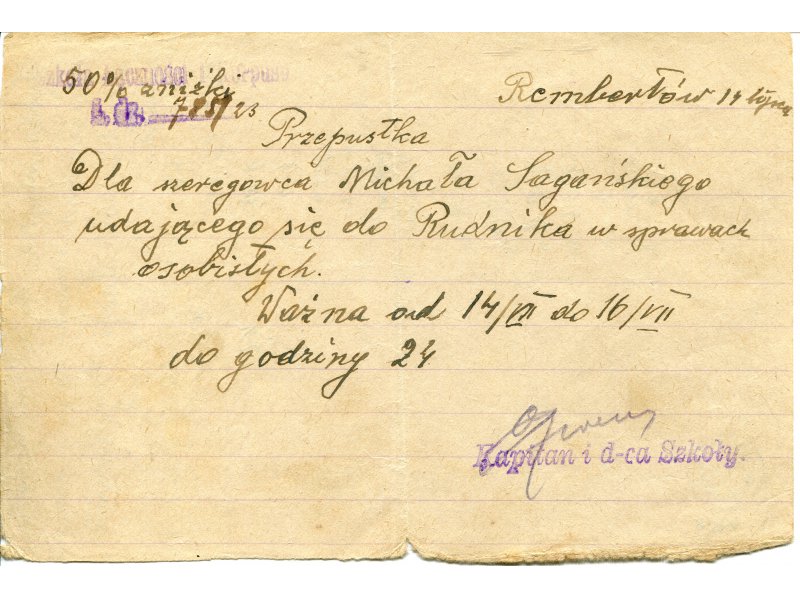 50% zniżki
L. dz. 785/23
Rembertów 14 lipca
Przepustka
Dla szeregowca Michała Sagańskiego
udającego się do Rudnika w sprawach
osobistych.
Ważna od 14/VII do 16/VII
do godziny 24
Kapitan i d-ca Szkoły.